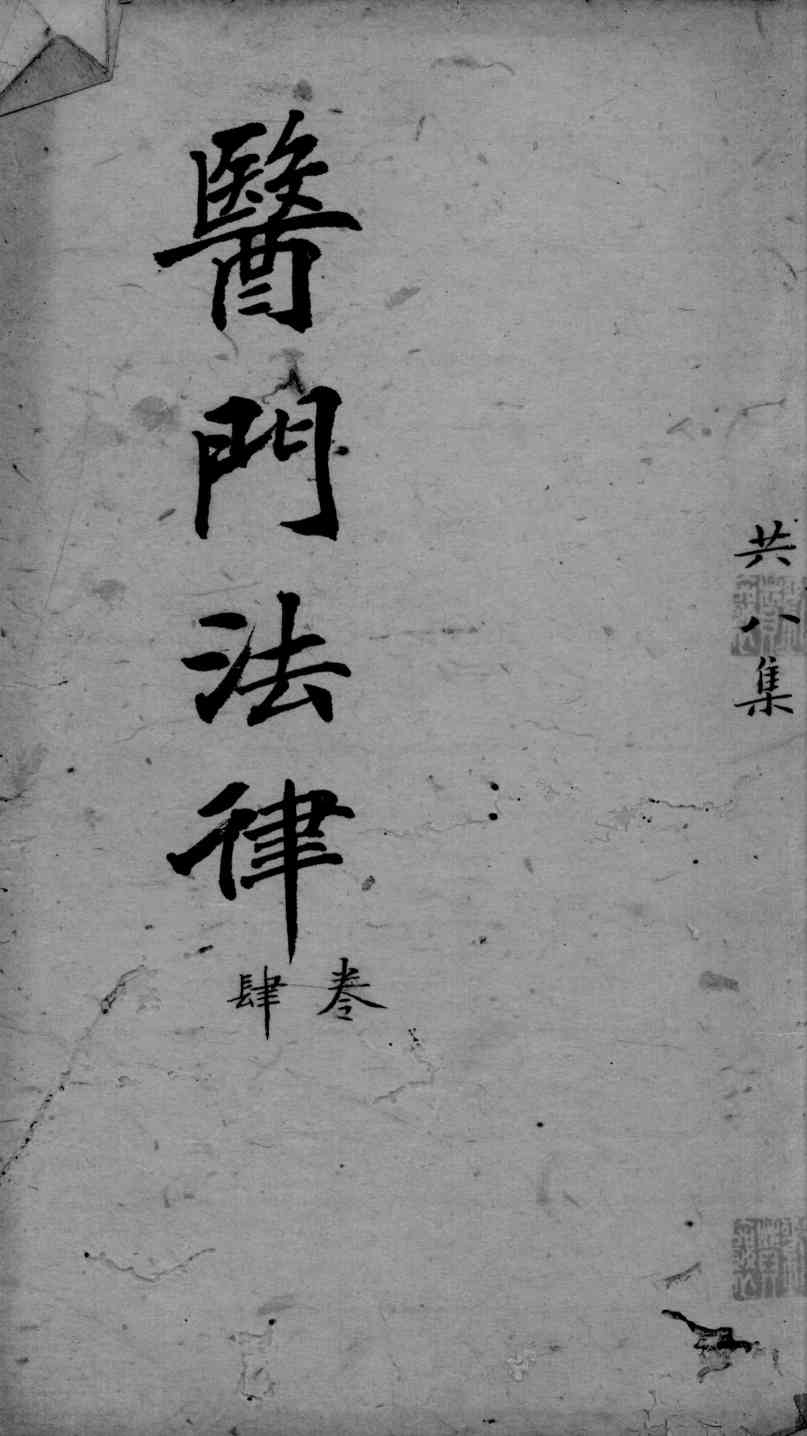 共八集
醫門法律
卷肆